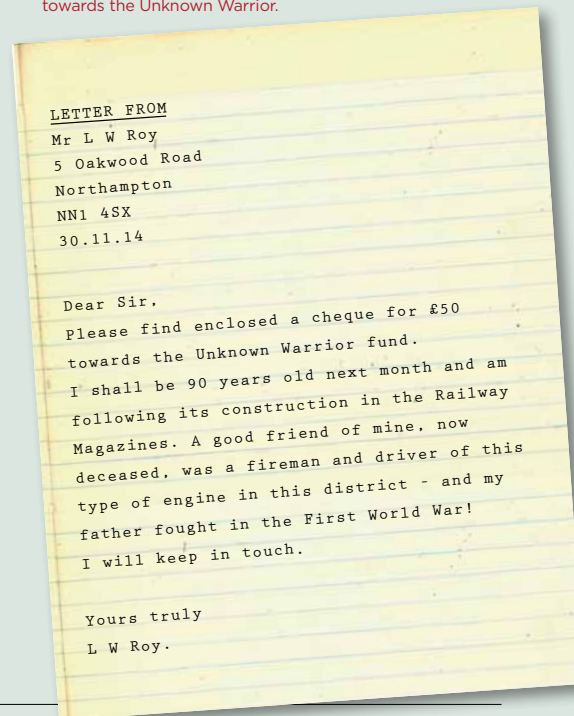 towards the Unknown Warrior.
LETTER FROM
Mr L W Roy
5 Oakwood Road
Northampton
NN1 4SX
30.11.14
Dear Sir,
Please find enclosed a cheque for £50
towards the Unknown Warrior fund.
I shall be 90 years old next month and am
following its construction in the Railway
Magazines. A good friend of mine, now
deceased, was a fireman and driver of this
type of engine in this district - and my
father fought in the First World War!
I will keep in touch.
Yours truly
L W Roy.